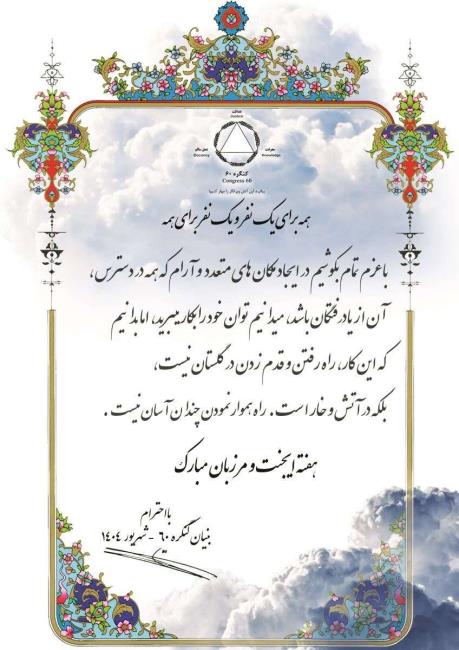 عدالت
Justice
معرفت
Knowledge
عمل سالم
Decency
کنگره ۶۰
Congress 60
همه برای یک نفر و یک نفر برای همه
با عزم تمام بکوشیم در ایجاد مکان های متعدد و آرام که همه در دسترس،
آن از یاد رفتگان باشد، میدانیم توان خود را بکار میبرید، اما بدانیم
که این کار، راه رفتن و قدم زدن در گلستان نیست،
بلکه در آتش و خار است. راه هموار نمودن چندان آسان نیست.
هفته ایجنت و مرزبان مبارک
بااحترام
بنیان کنگره ۶۰ - شهریور ۱۴۰۴